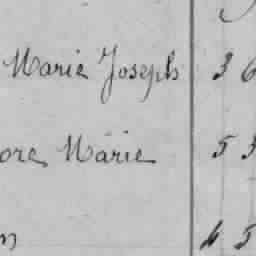 Marie Joseph 3 6
ore Marie 5 3
n 4 5